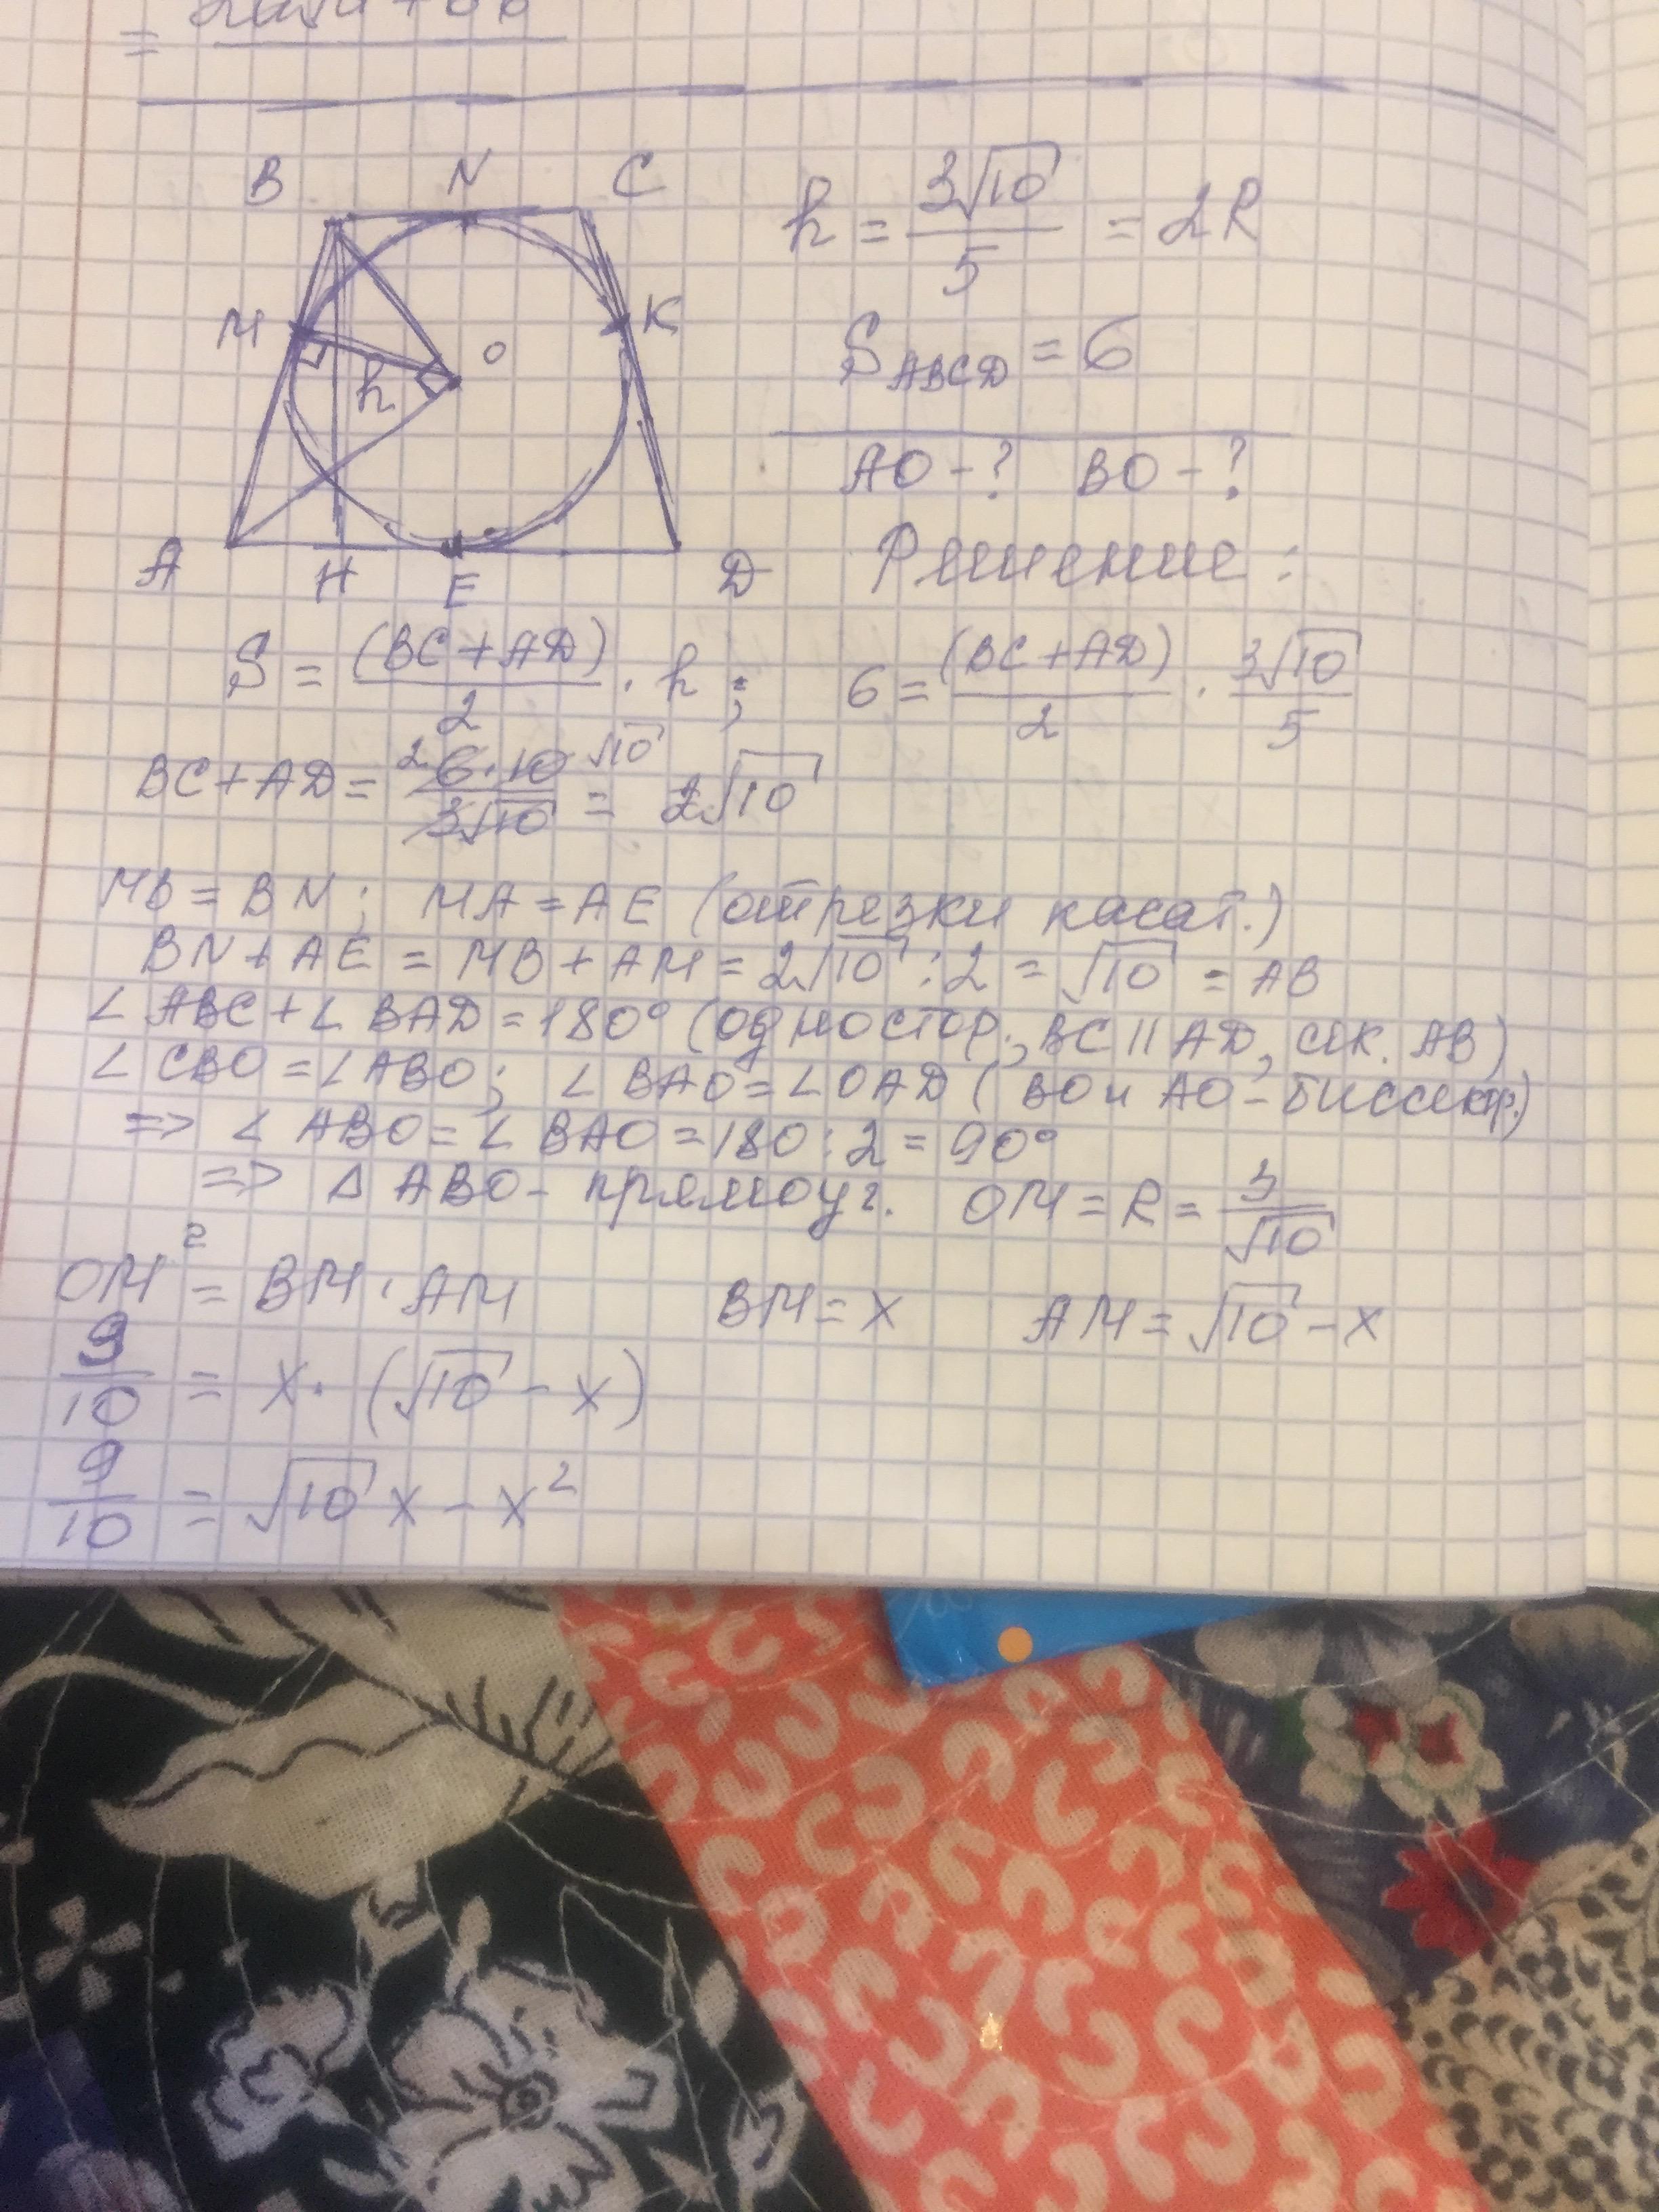 =
B N C
M K
O
h
A H E D
h = 3√10/5 = 2R
S ABCD = 6
AO - ? BO - ?
Решение :
S = (BC+AD)/2 · h ; 6 = (BC+AD)/2 · 3√10/5
BC+AD = 6·10/3√10 = 2√10
2 √10
MB = BN ; MA = AE (отрезки касат.)
BN + AE = MB + AM = 2√10 : 2 = √10 = AB
∠ ABC + ∠ BAD = 180° (одностор., BC || AD, сек. AB)
∠ CBO = ∠ ABO ; ∠ BAO = ∠ OAD ( BO и AO - биссектр.)
=> ∠ ABO = ∠ BAO = 180 : 2 = 90°
=> Δ ABO - прямоуг. OM = R = 3/√10
OM² = BM · AM BM = x AM = √10 - x
9/10 = x · (√10 - x)
9/10 = √10 x - x²